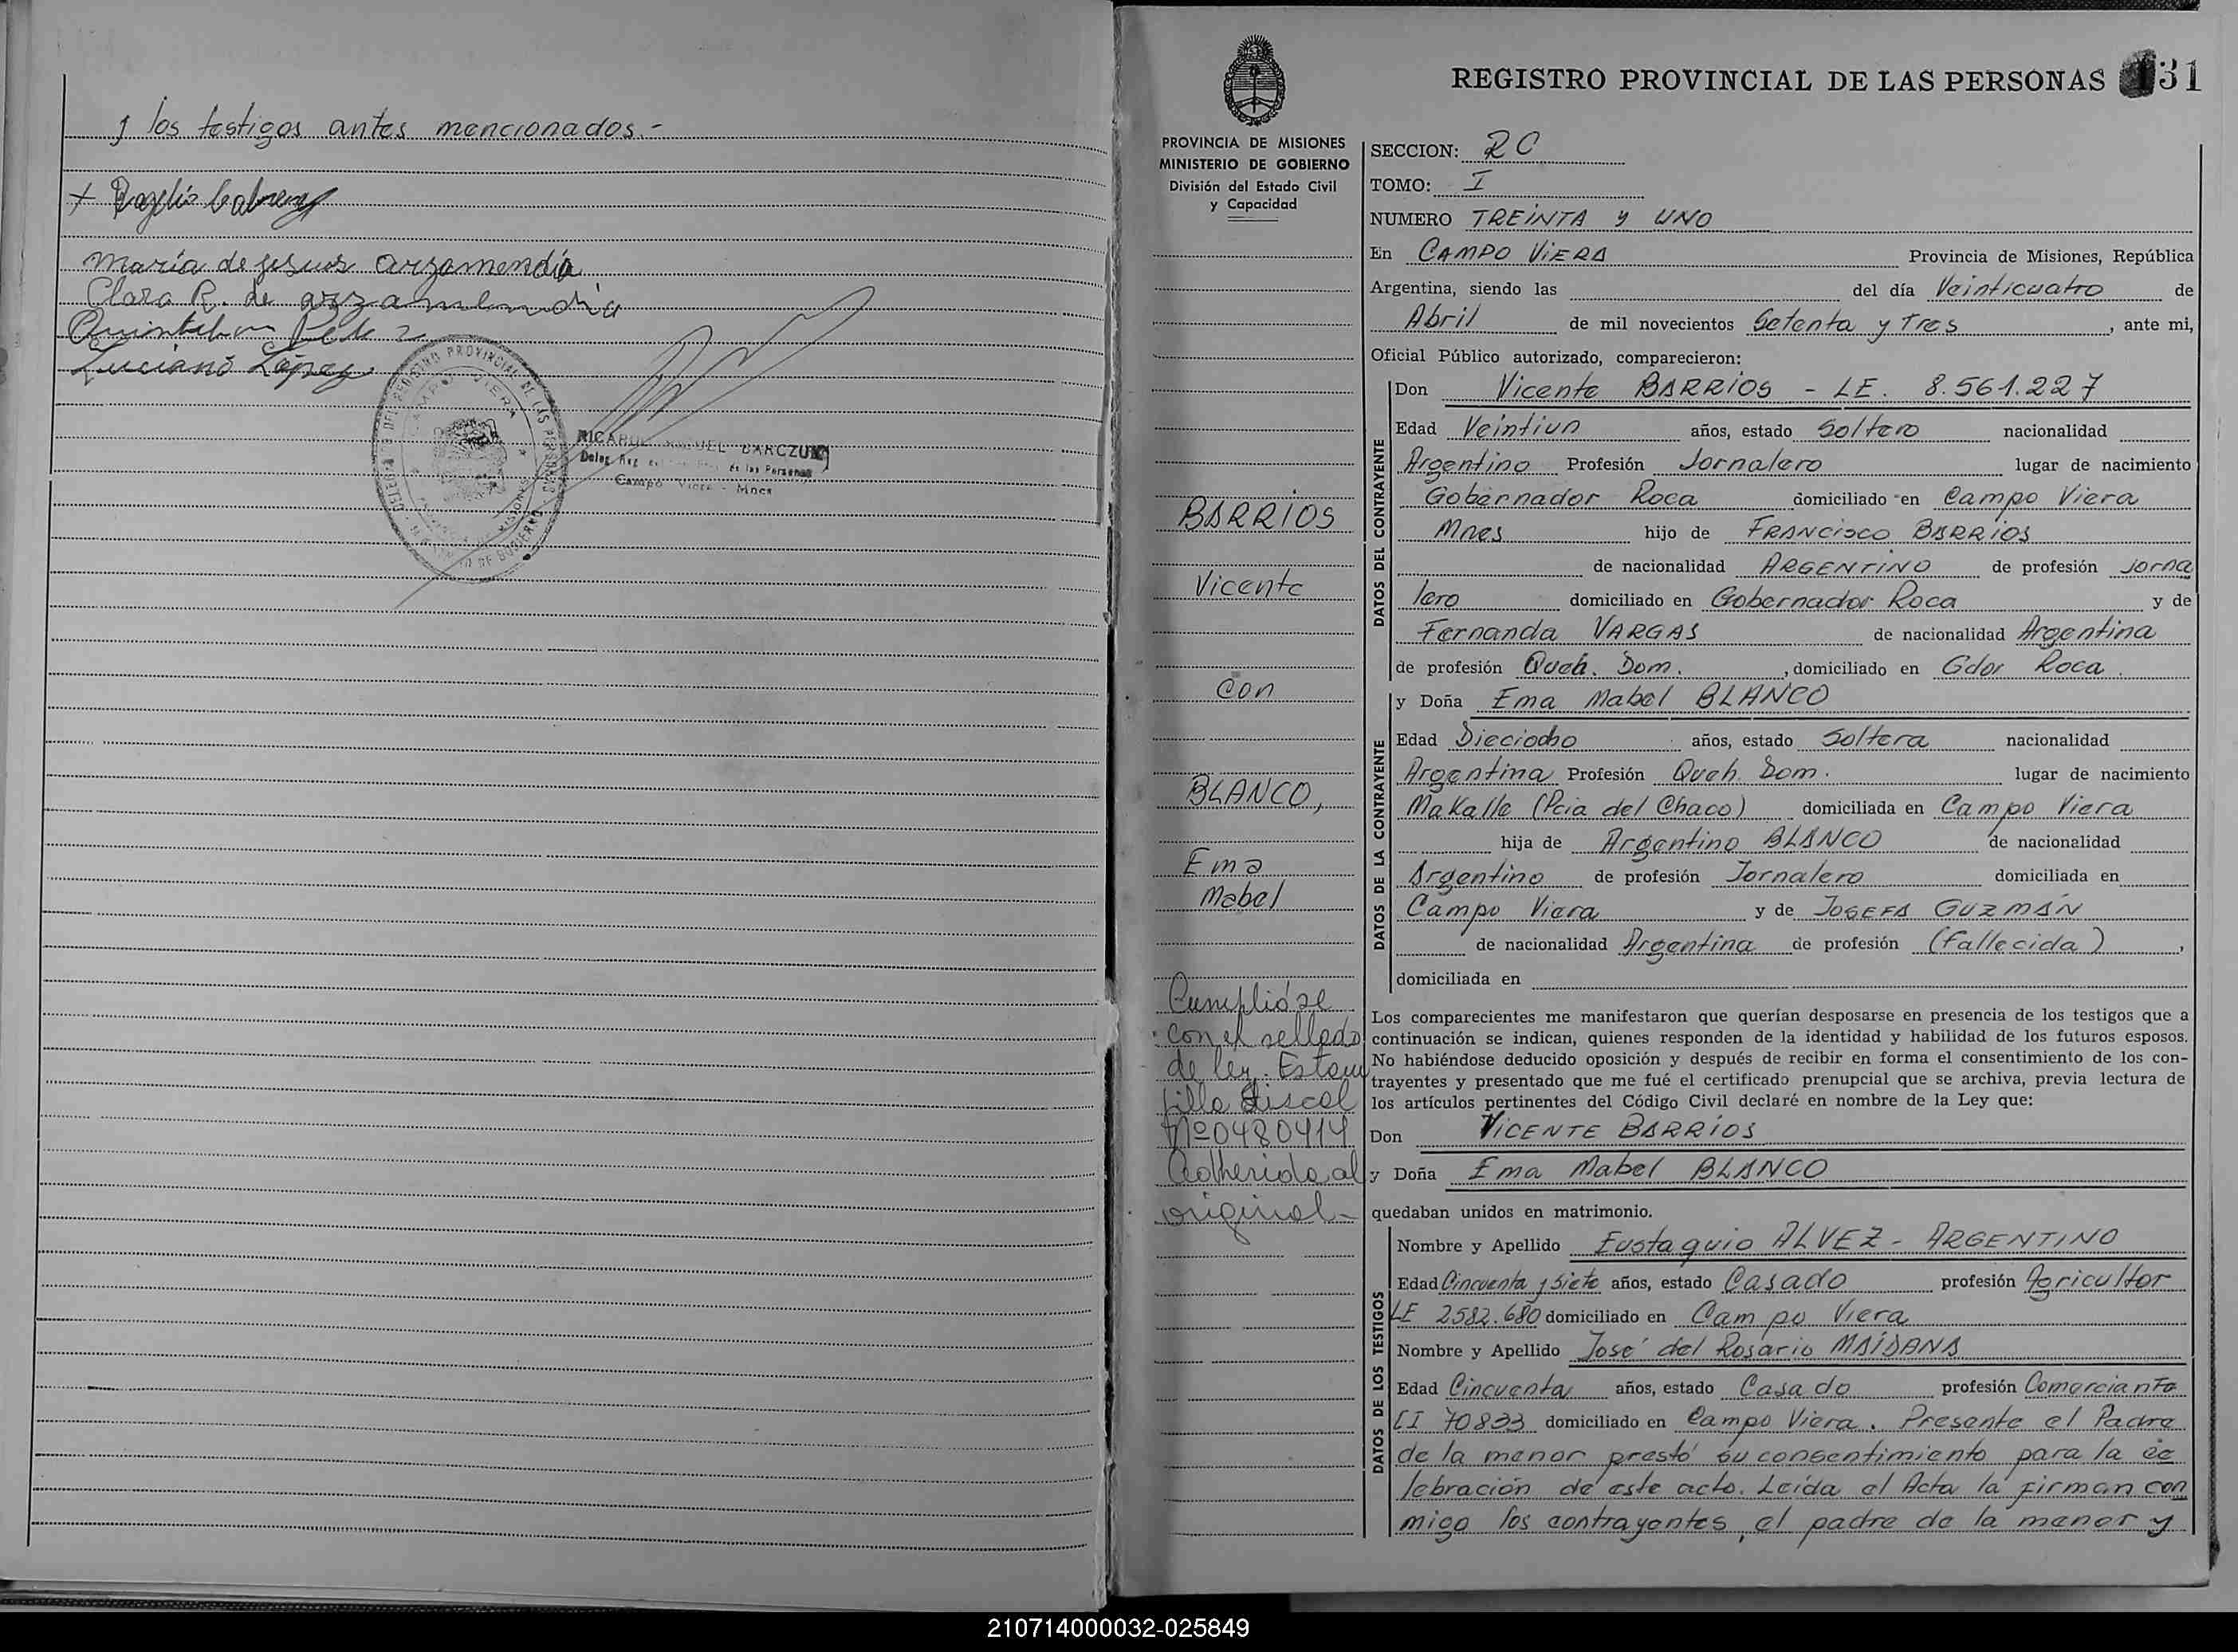 y los testigos antes mencionados.-
María de Jesus arzamendia
Clara R. de arzamendia
Luciano López
Campo Viera - Mnes
REGISTRO PROVINCIAL DE LAS PERSONAS 31
PROVINCIA DE MISIONES
MINISTERIO DE GOBIERNO
División del Estado Civil
y Capacidad
BARRIOS
Vicente
con
BLANCO,
Ema
Mabel
Cumplióse
con el sellado
de ley. Estam
pilla fiscal
Nº0480414
Adherida al
original-
SECCION: RC
TOMO: I
NUMERO TREINTA y UNO
En CAMPO VIERA Provincia de Misiones, República
Argentina, siendo las del día Veinticuatro de
Abril de mil novecientos Setenta y Tres, ante mi,
Oficial Público autorizado, comparecieron:
DATOS DEL CONTRAYENTE
Don Vicente BARRIOS - LE. 8.561.227
Edad Veintiun años, estado Soltero nacionalidad
Argentino Profesión Jornalero lugar de nacimiento
Gobernador Roca domiciliado en Campo Viera
Mnes hijo de FRANCISCO BARRIOS
de nacionalidad ARGENTINO de profesión Jorna
lero domiciliado en Gobernador Roca y de
Fernanda VARGAS de nacionalidad Argentina
de profesión Queh. Dom. , domiciliado en Gdor Roca.
DATOS DE LA CONTRAYENTE
y Doña Ema Mabel BLANCO
Edad Dieciocho años, estado Soltera nacionalidad
Argentina Profesión Queh. Dom. lugar de nacimiento
Makalle (Pcia del Chaco) domiciliada en Campo Viera
hija de Argentino BLANCO de nacionalidad
Argentino de profesión Jornalero domiciliada en
Campo Viera y de JOSEFA GUZMÁN
de nacionalidad Argentina de profesión (Fallecida) ,
domiciliada en
Los comparecientes me manifestaron que querían desposarse en presencia de los testigos que a
continuación se indican, quienes responden de la identidad y habilidad de los futuros esposos.
No habiéndose deducido oposición y después de recibir en forma el consentimiento de los con-
trayentes y presentado que me fué el certificado prenupcial que se archiva, previa lectura de
los artículos pertinentes del Código Civil declaré en nombre de la Ley que:
Don VICENTE BARRIOS
y Doña Ema Mabel BLANCO
quedaban unidos en matrimonio.
DATOS DE LOS TESTIGOS
Nombre y Apellido Eustaquio ALVEZ - ARGENTINO
Edad Cincuenta y Siete años, estado Casado profesión Agricultor
LE 2582.680 domiciliado en Campo Viera
Nombre y Apellido José del Rosario MAIDANA
Edad Cincuenta años, estado Casado profesión Comerciante
CI 70833 domiciliado en Campo Viera. Presente el Padre
de la menor prestó su consentimiento para la ce
lebración de este acto. Leída el Acta la firman con
migo los contrayentes, el padre de la menor y
210714000032-025849